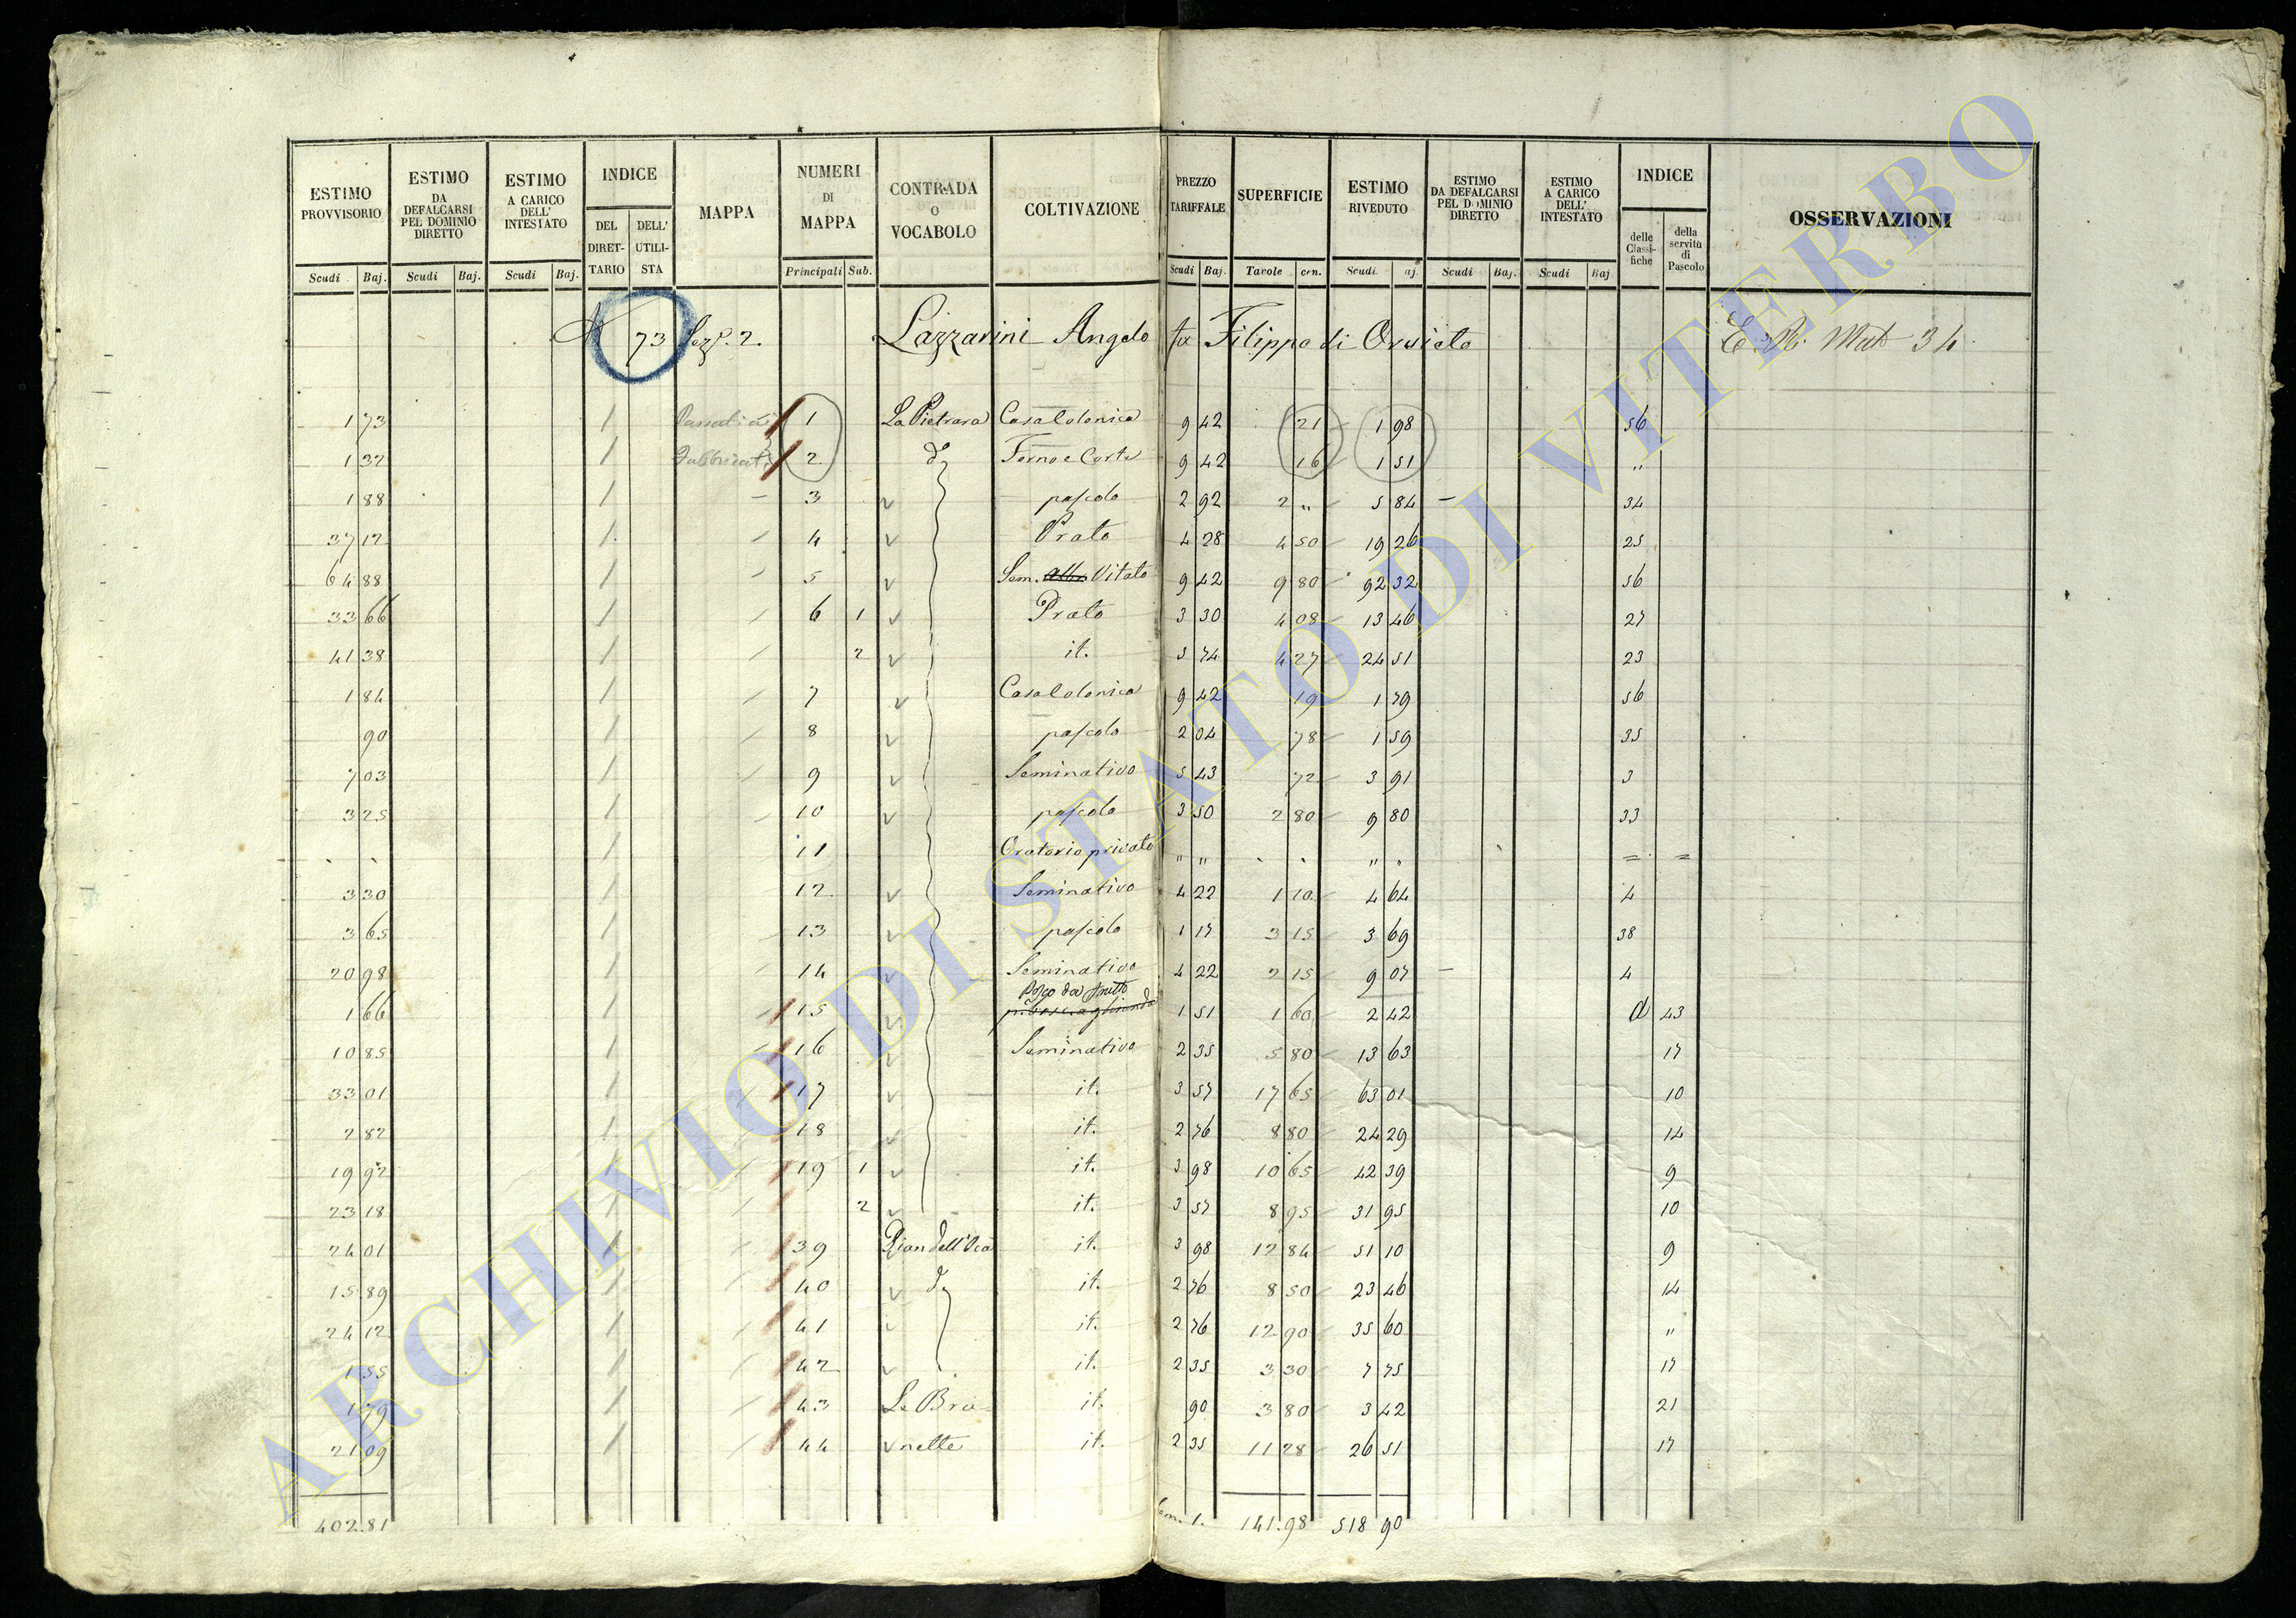 ESTIMO PROVVISORIO ESTIMO DA DEFALCARSI PEL DOMINIO DIRETTO ESTIMO A CARICO DELL' INTESTATO INDICE DEL DIRETTARIO DELL' UTILISTA MAPPA NUMERI DI MAPPA CONTRADA O VOCABOLO COLTIVAZIONE PREZZO TARIFFALE SUPERFICIE ESTIMO RIVEDUTO ESTIMO DA DEFALCARSI PEL DOMINIO DIRETTO ESTIMO A CARICO DELL' INTESTATO INDICE delle Classifiche della servitù di Pascolo OSSERVAZIONI
Scudi Baj. Scudi Baj. Scudi Baj. Principali Sub. Scudi Baj. Tavole cen. Scudi aj. Scudi Baj. Scudi Baj
73 Sez. 2. Lazzarini Angelo fu Filippo di Orvieto
1 73 1 La Pietrara Casa Colonica 9 42 21 1 98 56
1 32 2 d° Forno e Corte 9 42 16 1 51 "
1 88 3 pascolo 2 92 2 " 5 84 34
37 12 4 Prato 4 28 4 50 19 26 25
64 88 5 Sem. Vitato 9 42 9 80 92 32 56
33 66 6 1 Prato 3 30 4 08 13 46 27
41 38 2 it. 5 74 4 27 24 51 23
1 84 7 Casa Colonica 9 42 19 1 79 56
90 8 pascolo 2 04 78 1 59 35
7 03 9 Seminativo 5 43 72 3 91 3
3 25 10 pascolo 3 50 2 80 9 80 33
11 Oratorio privato " " " "
3 30 12 Seminativo 4 22 1 10 4 64 4
3 65 13 pascolo 1 17 3 15 3 69 38
20 98 14 Seminativo 4 22 2 15 9 07 4
1 66 15 Bosco da frutto 1 51 1 60 2 42 d 43
10 85 16 Seminativo 2 35 5 80 13 63 17
33 01 17 it. 3 57 17 65 63 01 10
2 82 18 it. 2 76 8 80 24 29 14
19 92 19 1 it. 3 98 10 65 42 39 9
23 18 2 it. 3 57 8 95 31 95 10
24 01 39 Pian dell'Oca it. 3 98 12 84 51 10 9
15 89 40 d° it. 2 76 8 50 23 46 14
24 12 41 it. 2 76 12 90 35 60 "
1 55 42 it. 2 35 3 30 7 75 17
1 79 43 Le Bru- it. 90 3 80 3 42 21
21 09 44 nette it. 2 35 11 28 26 51 17
402.81 141.98 518 90
ARCHIVIO DI STATO DI VITERBO